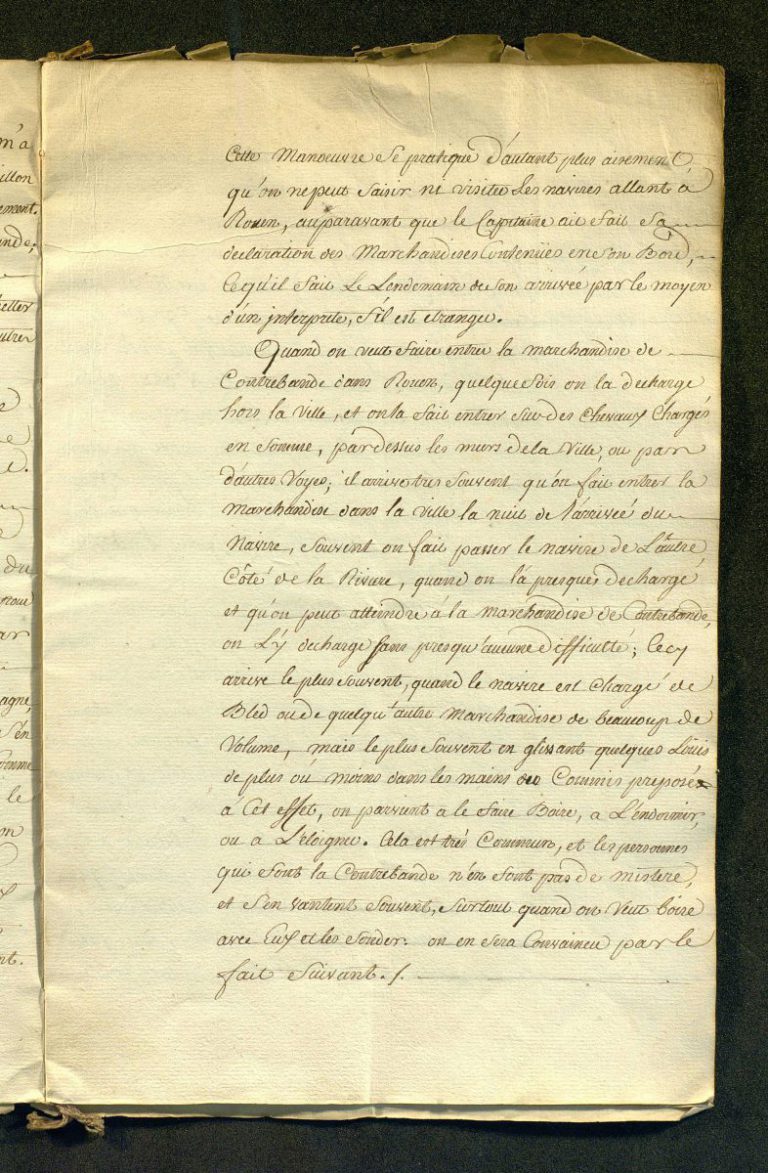 m'a
illon
ement.
nde;
eller
utres
du
nour
ar
agne,
s'en
le
on
nt.
Cette Manoeuvre se pratique d'autant plus aisement
qu'on ne peut saisir ni visiter Les navires allant à
Rouen, auparavant que le Capitaine ait fait sa
declaration des Marchandises Contenües en son Bord,
Ce qu'il fait Le Lendemain de son arrivée par le moyen
d'un interprete, s'il est etranger.
Quand on veut faire entrer la marchandise de
Contrebande dans Rouen, quelque fois on la decharge
hors la Ville, et on la fait entrer sur des Chevaux Chargés
en Somme, par dessus les murs de la Ville, ou par
d'autres Voyes; il arrive tres souvent qu'on fait entrer la
Marchandise dans la Ville la nuit de l'arriveé du
Navire, souvent on fait passer le navire de L'autre
Côté de la Riviere, quand on l'a presque dechargé
et qu'on peut atteindre a la marchandise de Contrebande,
on L'y decharge sans presqu'aucune difficulté; Cecy
arrive le plus souvent, quand le navire est Chargé de
Bled ou de quelqu'autre Marchandise de beaucoup de
Volume, mais le plus souvent en glissant quelques Louis
de plus ou moins dans les mains du Commis preposé
à Cet effet, on parvient a le faire Boire, a L'endormir,
ou a L'eloigner. Cela est trés Commun, et les personnes
qui font la Contrebande n'en font pas de mistere,
et s'en vantent souvent, surtout quand on veut boire
avec Eux et les sonder. on en sera Convaincu par le
fait suivant. /.